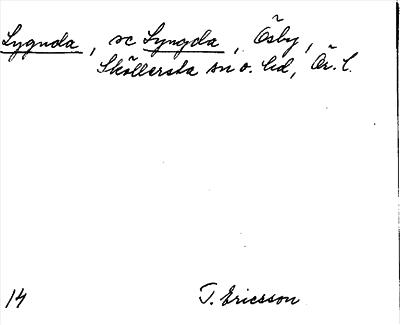 Lygnda, sc Lyngda, Ösby,
Sköllersta sn o. hd, Ör. l.
14 T. Ericsson